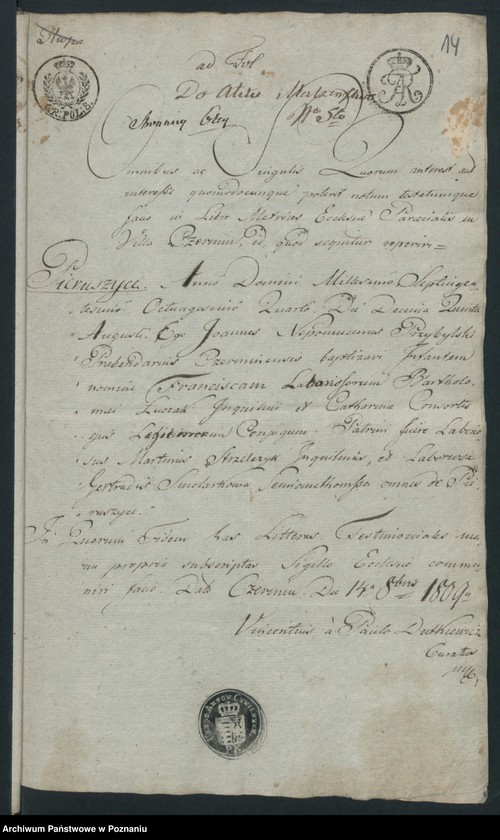 14
GR. POL. 8.
ad Fol
Do Aktu
No 5to
Omnibus ac Singulis Quorum interest aut
interesse quomodocunque poterit notum testatumque
facio in Libro Metrices Ecclesiæ Parœcialis in
Villa Czermin, id, quod sequitur reperiri =
Pieruszyce. Anno Domini Millesimo Septingen
tesimo Octuagesimo Quarto. Die Decima Quinta
Augusti. Ego Joannes Nepomucenus Przybylski
Præbendarius Czerminensis baptizavi Infantem
nomine Franciscam Laboriosorum Bartholo
mæi Luczak Inquilini et Catharinæ Consortis
ejus Legitimorum Conjugum. Patrini fuere Laborio
sus Martinus Strzelczyk Inquilinus, et Laboriosa
Gertrudis Smolarkowa omnes de Pie
ruszyce.
In Quorum Fidem has Litteras Testimoniales ma
nu propria subscriptas Sigillo Ecclesiæ commu
niri facio. Dat Czermin. Die 14a 8bris 1809
Vincentius à Paulo Dutkiewicz
Curatus
mpp
AKTOW CYWILNYCH
Archiwum Państwowe w Poznaniu